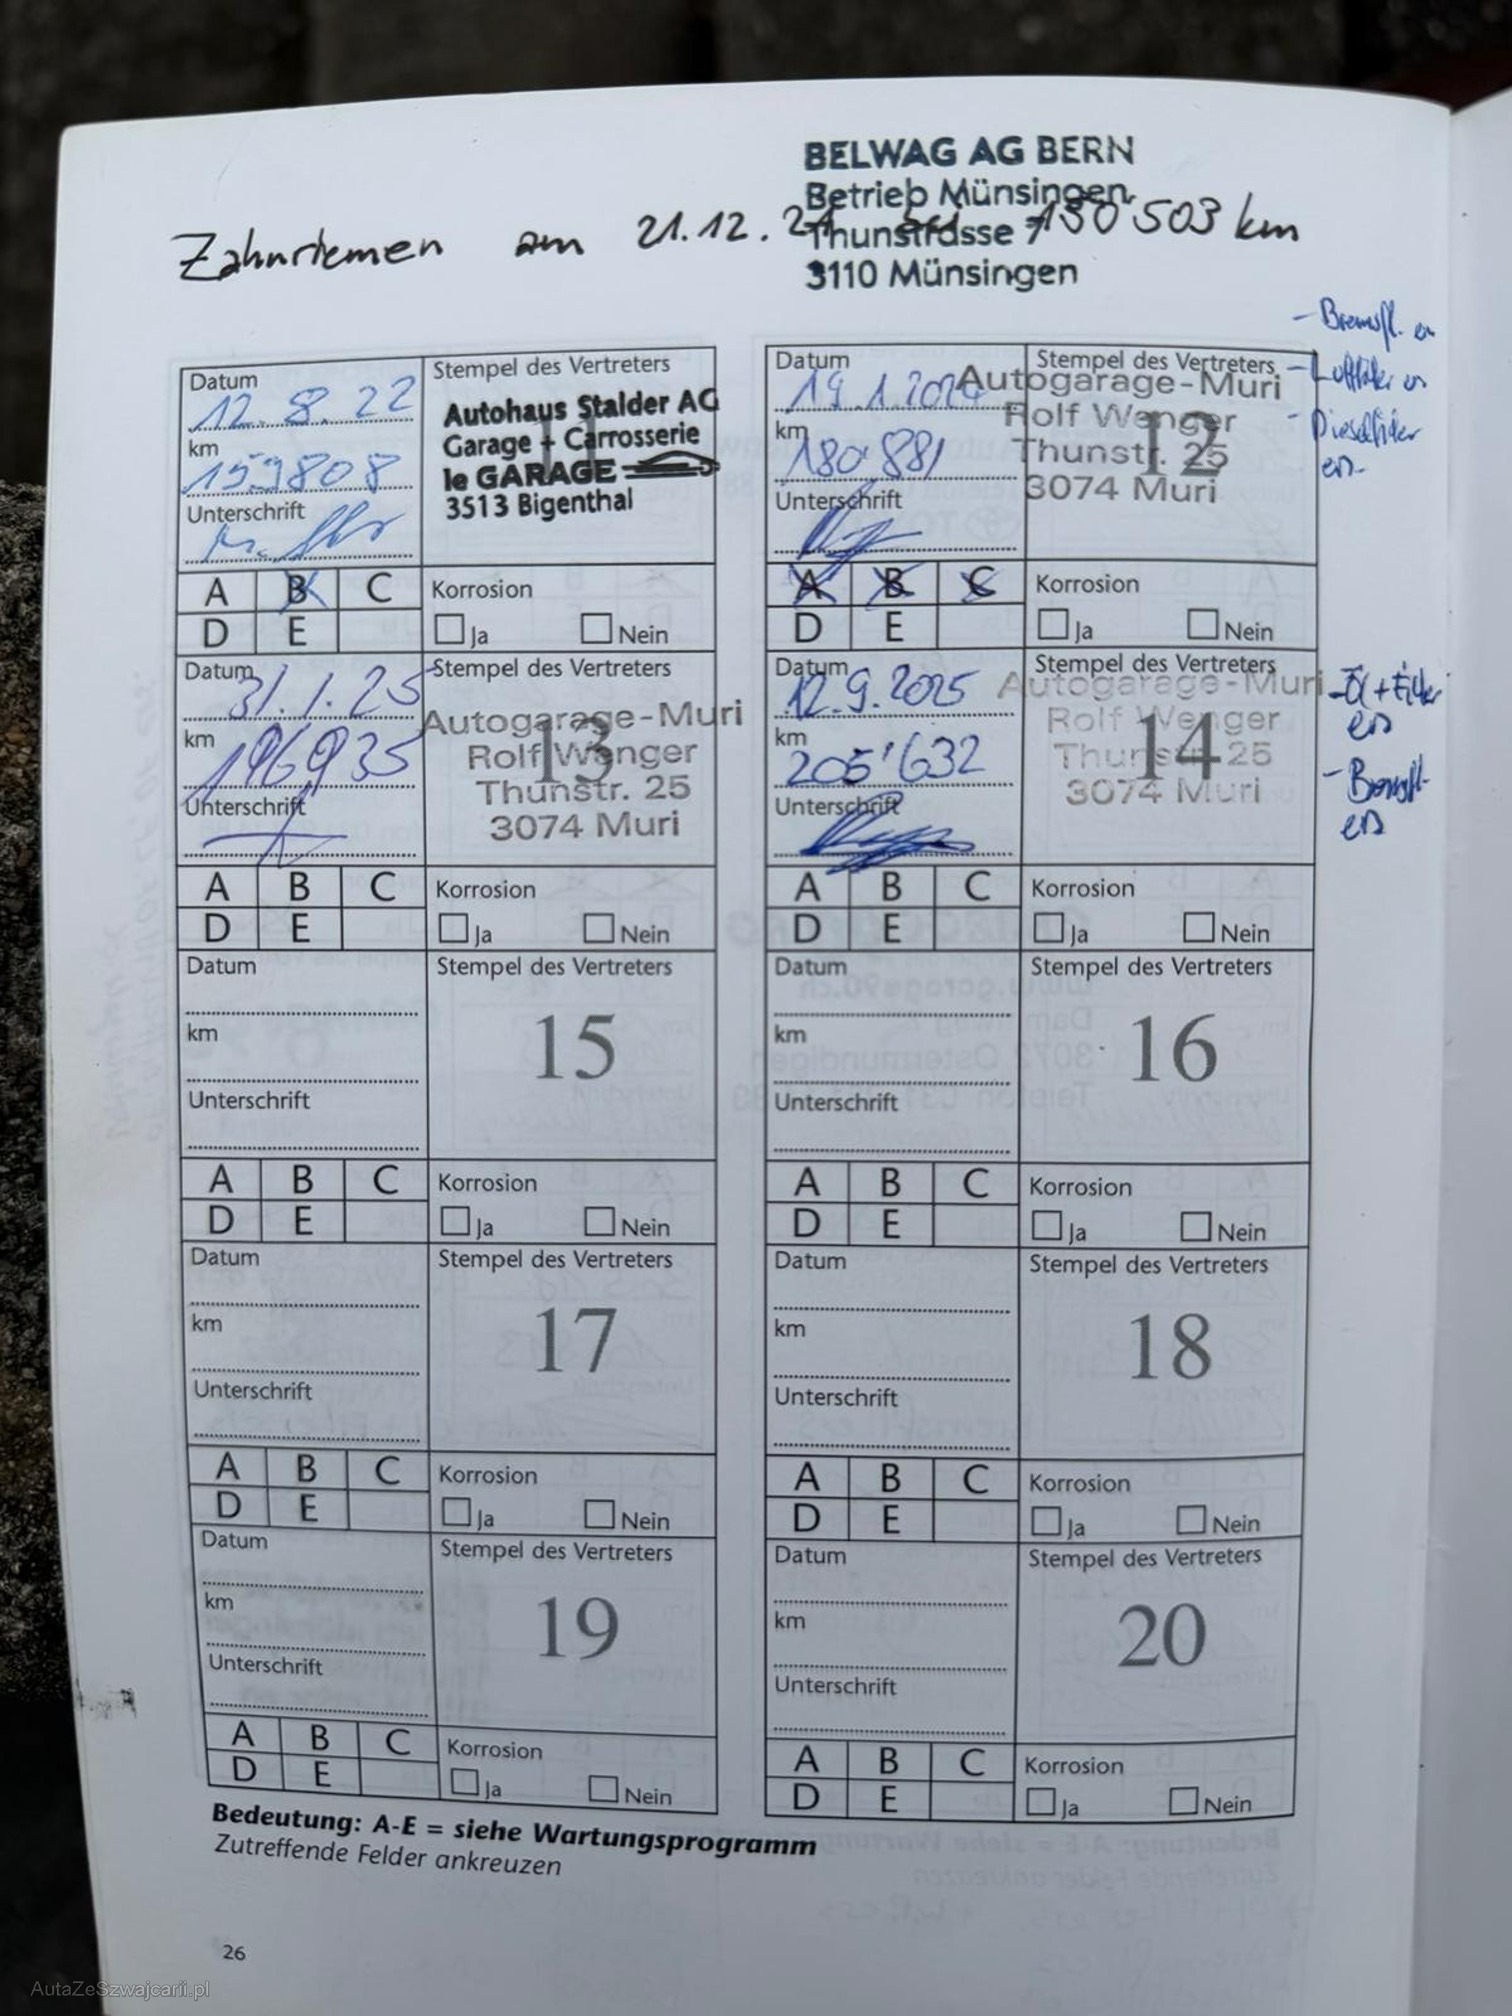 BELWAG AG BERN
Betrieb Münsingen
Thunstrasse 7
3110 Münsingen
Zahnriemen am 21.12.21 bei 150503 km
Datum
12.8.22
km
159808
Unterschrift
Stempel des Vertreters
11
Autohaus Stalder AG
Garage + Carrosserie
le GARAGE
3513 Bigenthal
A B C
D E
Korrosion
Ja Nein
Datum
19.1.2024
km
180'881
Unterschrift
Stempel des Vertreters
12
Autogarage-Muri
Rolf Wenger
Thunstr. 25
3074 Muri
- Bremsfl.
- Luftfilter
- Dieselfilter
A B C
D E
Korrosion
Ja Nein
Datum
31.1.25
km
196935
Unterschrift
Stempel des Vertreters
13
Autogarage-Muri
Rolf Wenger
Thunstr. 25
3074 Muri
A B C
D E
Korrosion
Ja Nein
Datum
12.9.2025
km
205'632
Unterschrift
Stempel des Vertreters
14
Autogarage-Muri
Rolf Wenger
Thunstr. 25
3074 Muri
- Öl + Filter
ers
- Bremsfl.
ers
A B C
D E
Korrosion
Ja Nein
Datum
km
Unterschrift
Stempel des Vertreters
15
A B C
D E
Korrosion
Ja Nein
Datum
km
Unterschrift
Stempel des Vertreters
16
A B C
D E
Korrosion
Ja Nein
Datum
km
Unterschrift
Stempel des Vertreters
17
A B C
D E
Korrosion
Ja Nein
Datum
km
Unterschrift
Stempel des Vertreters
18
A B C
D E
Korrosion
Ja Nein
Datum
km
Unterschrift
Stempel des Vertreters
19
A B C
D E
Korrosion
Ja Nein
Datum
km
Unterschrift
Stempel des Vertreters
20
A B C
D E
Korrosion
Ja Nein
Bedeutung: A-E = siehe Wartungsprogramm
Zutreffende Felder ankreuzen
26
AutaZeSzwajcarii.pl